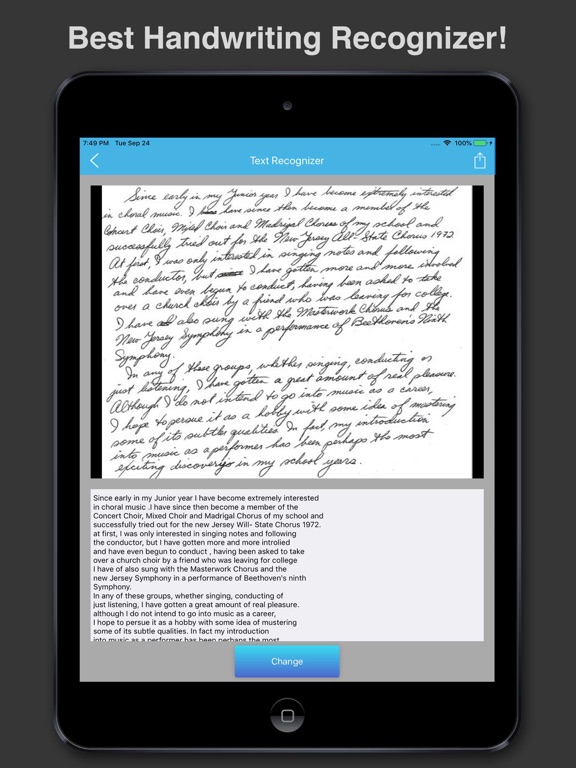 Best Handwriting Recognizer!
7:49 PM Tue Sep 24
100%
Text Recognizer
Since early in my Junior year I have become extremely interested
in choral music. I have since then become a member of the
Concert Choir, Mixed Choir and Madrigal Chorus of my school and
successfully tried out for the New Jersey All-State Chorus 1972.
At first, I was only interested in singing notes and following
the conductor, but I have gotten more and more involved
and have even begun to conduct, having been asked to take
over a church choir by a friend who was leaving for college.
I have also sung with the Masterwork Chorus and the
New Jersey Symphony in a performance of Beethoven's Ninth
Symphony.
In any of these groups, whether singing, conducting or
just listening, I have gotten a great amount of real pleasure.
Although I do not intend to go into music as a career,
I hope to persue it as a hobby with some idea of mastering
some of its subtle qualities. In fact, my introduction
into music as a performer has been perhaps the most
exciting discovery in my school years.
Since early in my Junior year I have become extremely interested
in choral music .I have since then become a member of the
Concert Choir, Mixed Choir and Madrigal Chorus of my school and
successfully tried out for the new Jersey Will- State Chorus 1972.
at first, I was only interested in singing notes and following
the conductor, but I have gotten more and more introlied
and have even begun to conduct , having been asked to take
over a church choir by a friend who was leaving for college
I have of also sung with the Masterwork Chorus and the
new Jersey Symphony in a performance of Beethoven's ninth
Symphony.
In any of these groups, whether singing, conducting of
just listening, I have gotten a great amount of real pleasure.
although I do not intend to go into music as a career,
I hope to persue it as a hobby with some idea of mustering
some of its subtle qualities. In fact my introduction
into music as a performer has been perhaps the most
Change